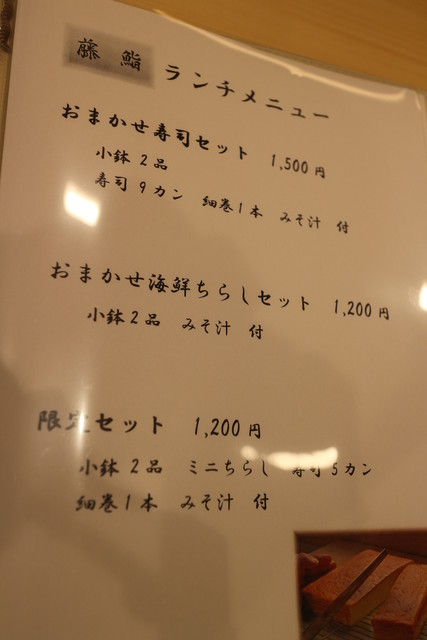 藤 鮨 ランチメニュー
おまかせ寿司セット 1,500円
小鉢2品
寿司9カン 細巻1本 みそ汁 付
おまかせ海鮮ちらしセット 1,200円
小鉢2品 みそ汁 付
限定セット 1,200円
小鉢2品 ミニちらし 寿司5カン
細巻1本 みそ汁 付